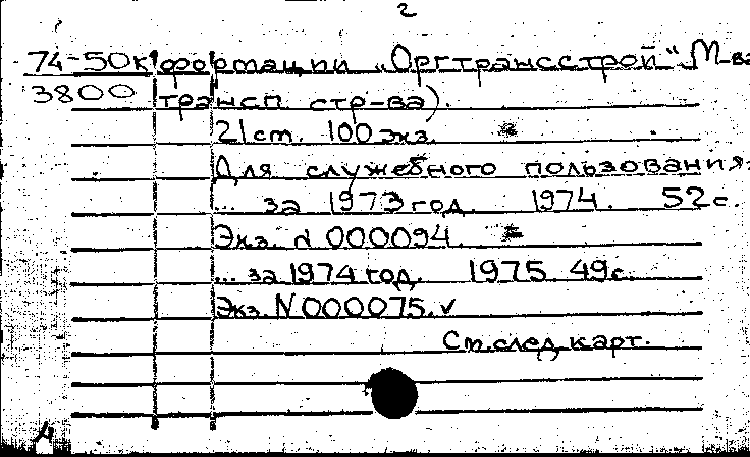 2
74-50к формации „Оргтрансстрой“ М-ва
3800 трансп. стр-ва).
21 ст. 100 экз.
Для служебного пользования.
... за 1973 год. 1974. 52 с.
Экз. N 000094.
... за 1974 год. 1975. 49 с.
Экз. N 000075. ✓
См. след. карт.